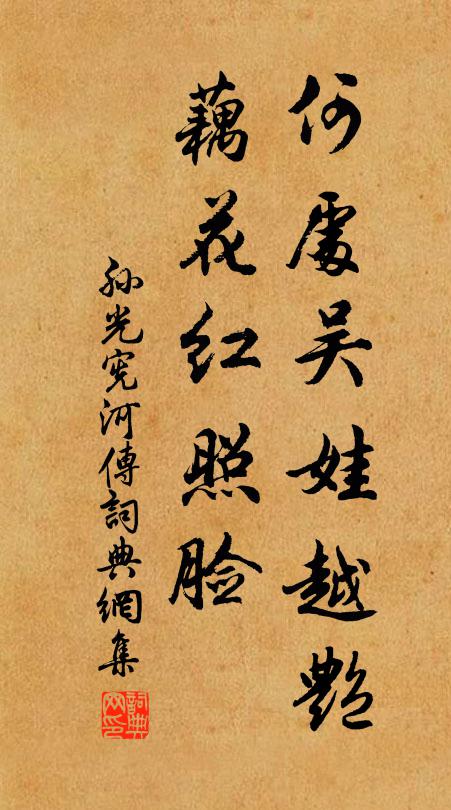 何處吴娃越艷
藕花红照脸
孙光宪河傳詞典網集
詞典网印